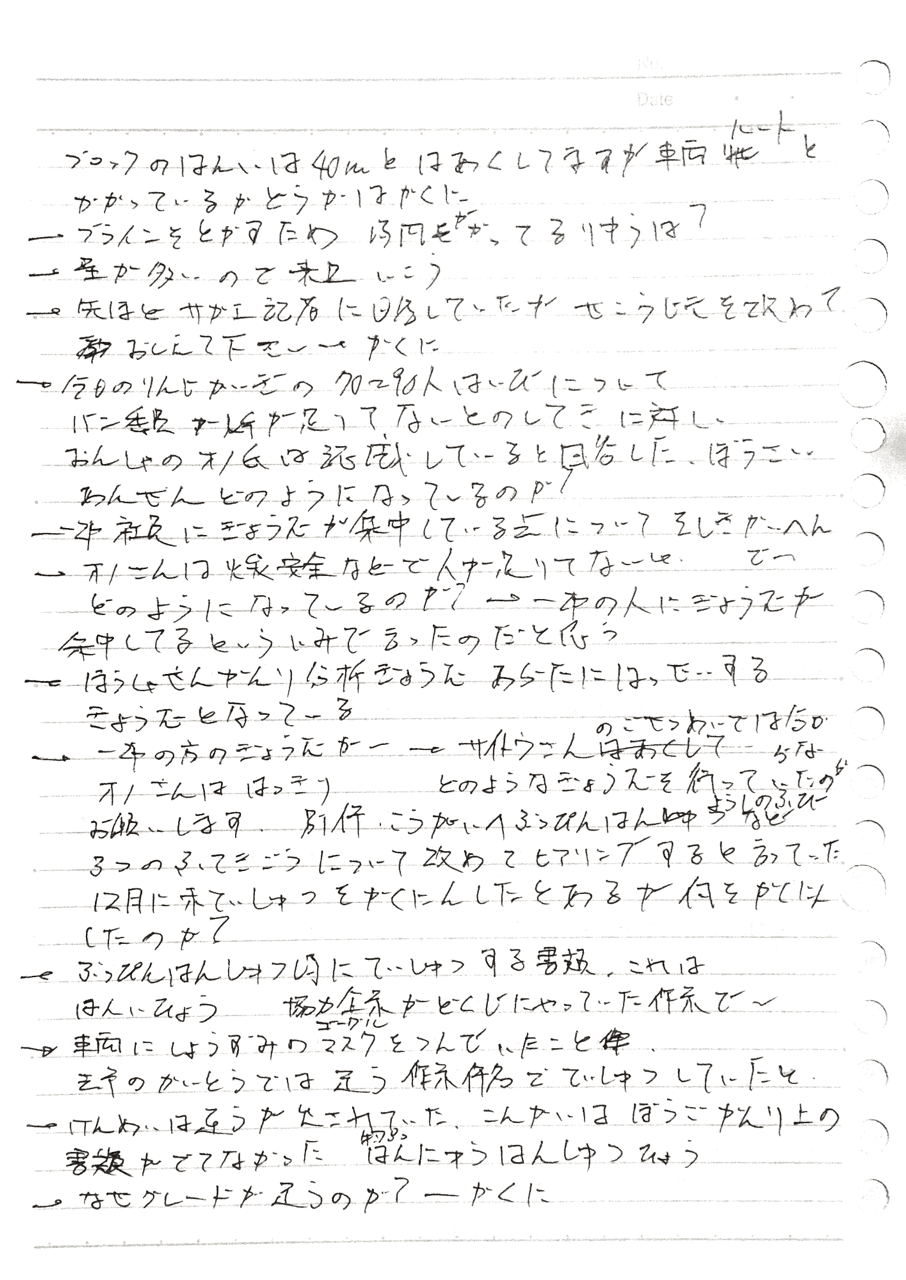 No.
Date
ブロックのはんいは40mとはあくしてますが車両ルートと
かかっているかどうかはかくに
→ ブラインをとかすため 凸凹がかってるりゆうは?
→ 量が多いので 未 いこう
→ 先ほど サガエ記者に回答していたが せこうじきを改めて
おしえて下さい → かくに
→ 今日のりんじかいぎの 70〜90人はいびについて
バン委員 が足ってないとのしてきに対し、
おんしゃのオノ氏は認識していると回答した、ぼうごい
あんぜんどのようになっているのか?
→ 一本社員にぎょうむが集中している点について そしきかいへん
→ オノさんは 安全などで人が足りてないと. で〜
どのようになっているのか? → 一本の人にぎょうむが
集中してるといういみで言ったのだと思う
→ ほうしゃせんかんり分析ぎょうむ あらたにはっせいする
ぎょうむとなっている
→ 一本の方のぎょうむがー → サイトウさんのごせつめいでは分からな
オノさんははっきり どのようなぎょうむを行っていたのか
お願いします. 別件・こうがいへぶっぴんはんしゅつようしのふびなど
3つのふてきごうについて改めてヒアリングすると言っていた
12月に未ていしゅつをかくにんしたとあるが何をかくにん
したのか?
→ ぶっぴんはんしゅつ時にていしゅつする書類、これは
はんいひょう 協力企業がどくじにやっていた作業で〜
→ 車両にしようずみのゴーグルマスクをつんでいたこと件.
のかいとうでは違う作業件名でていしゅつしていたと.
→ けんめいは違うが欠されていた、こんかいはほうごかんり上の
書類がでてなかった 物ぴんはんにゅうはんしゅつひょう
→ なぜグレードが違うのか? — かくに